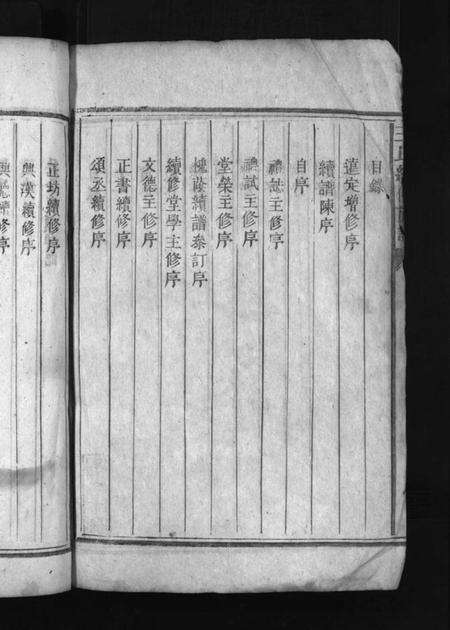 目錄
道定增修序
續譜陳序
自序
禮試主修序
禮試主修序
堂榮主修序
槐蔭續譜叅訂序
續修堂學主修序
文德主修序
正書續修序
頌丞續修序
正坊續修序
興漢續修序